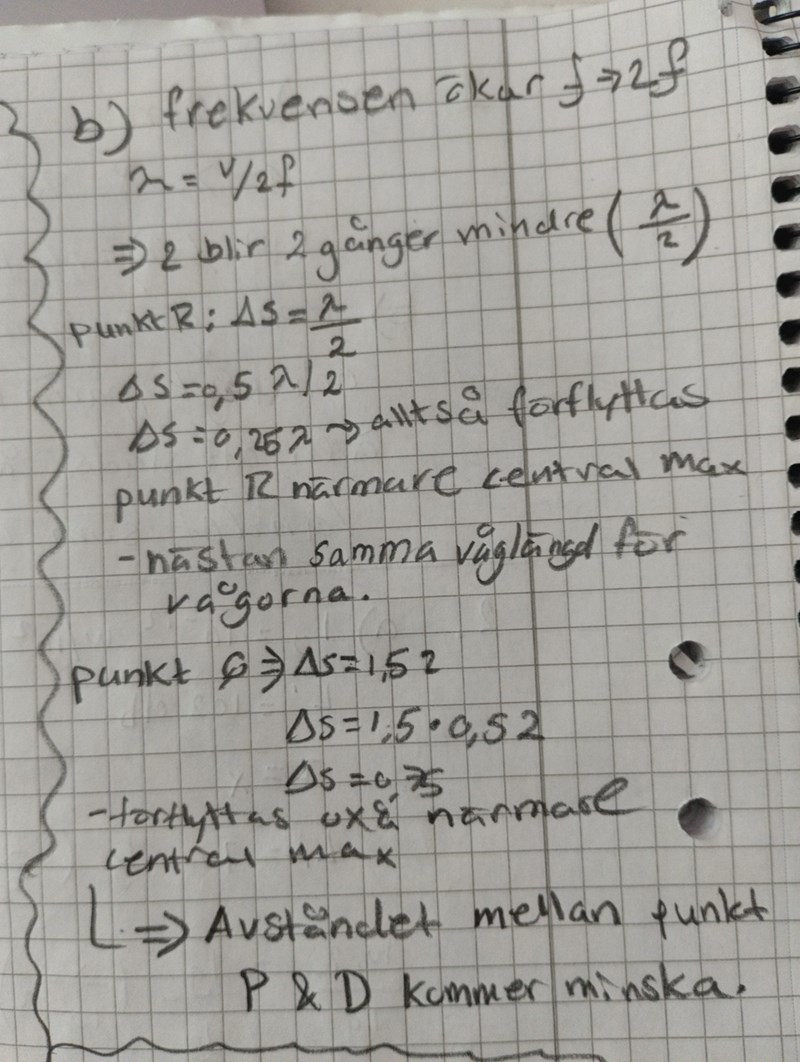 b) frekvensen ökar f⇒2f
λ = v/2f
⇒ λ blir 2 gånger mindre (λ/2)
punkt R: ΔS = λ/2
ΔS = 0,5 λ/2
ΔS = 0,25λ → alltså förflyttas
punkt R närmare central max
- nästan samma våglängd för
vågorna.
punkt ⇒ ΔS = 1,5λ
ΔS = 1,5 · 0,5λ
ΔS = 0,75
- förflyttas oxå närmare
central max
⇒ Avståndet mellan punkt
P & D kommer minska.